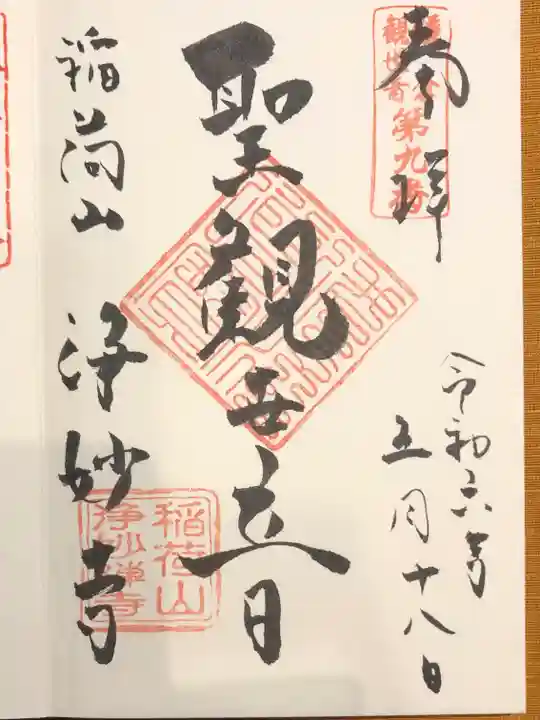 奉拝
鎌倉
観世音
第九番
令和六年
五月十八日
聖観世音
稲荷山
浄妙寺
稲荷山
浄妙禅寺